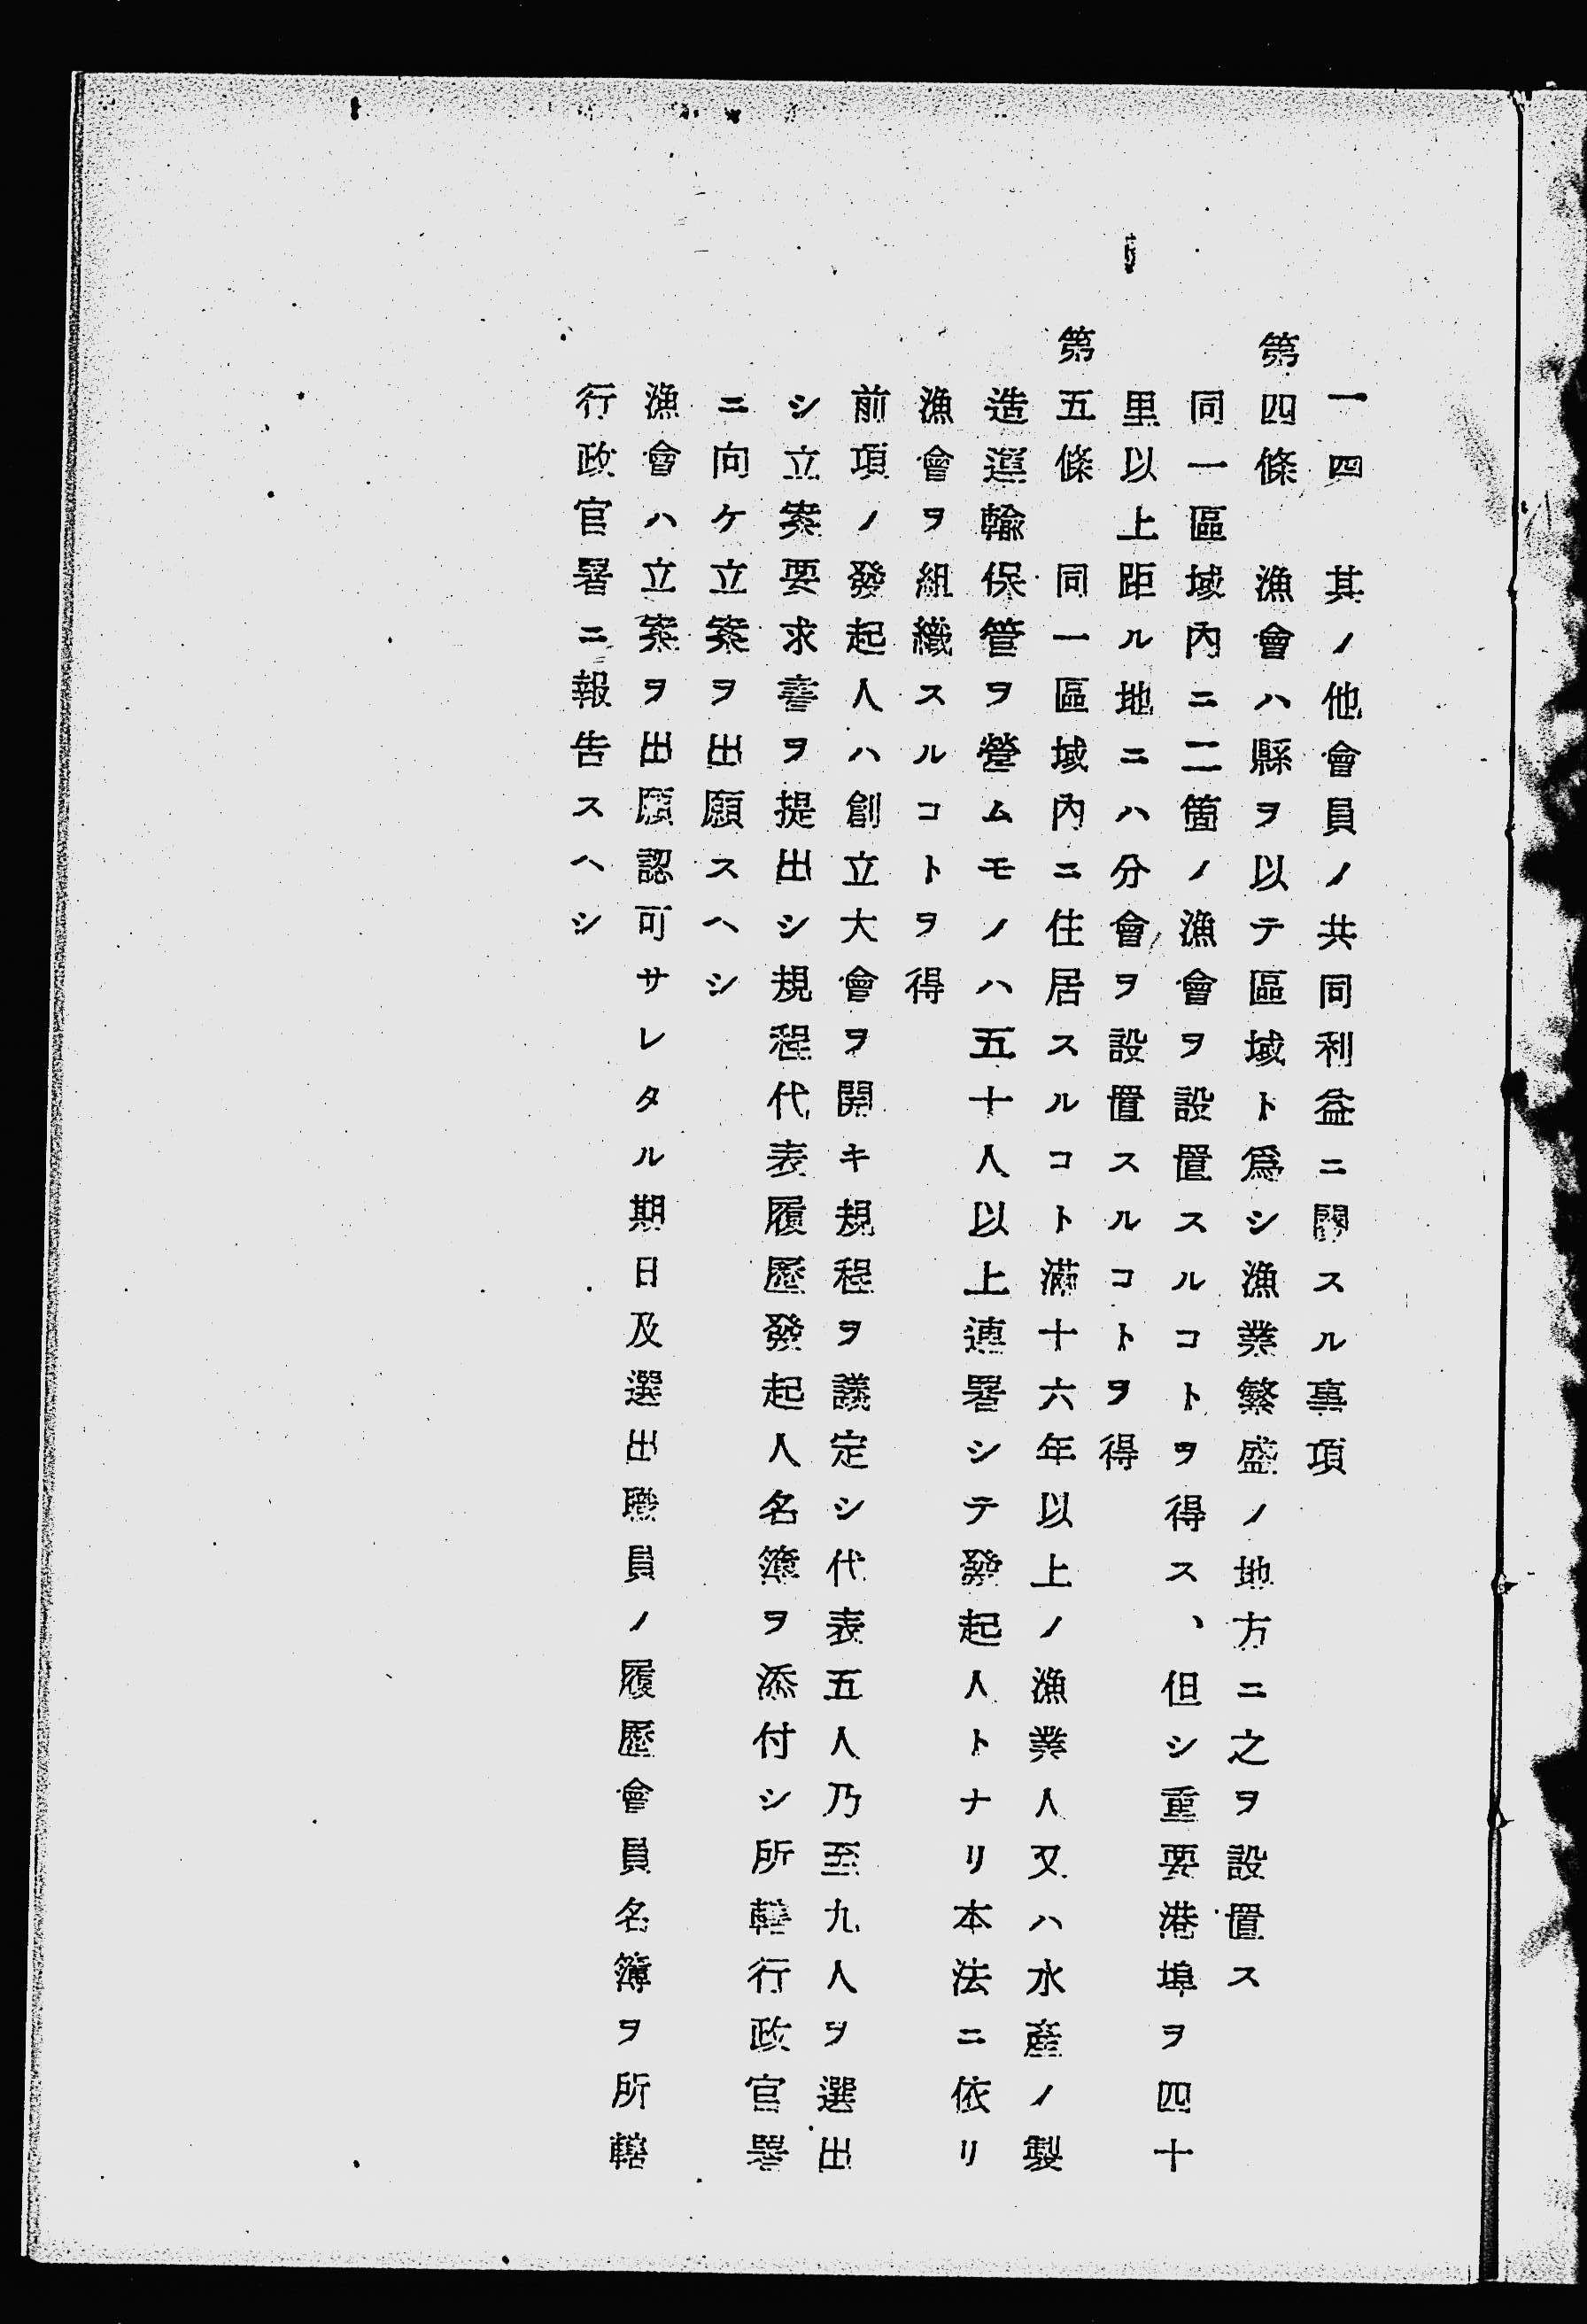 一四　其ノ他會員ノ共同利益ニ關スル事項
第四條　漁會ハ縣ヲ以テ區域ト爲シ漁業繁盛ノ地方ニ之ヲ設置ス
同一區域內ニ二箇ノ漁會ヲ設置スルコトヲ得ス、但シ重要港埠ヲ四十
里以上距ル地ニハ分會ヲ設置スルコトヲ得
第五條　同一區域內ニ住居スルコト滿十六年以上ノ漁業人又ハ水產ノ製
造運輸保管ヲ營ムモノハ五十人以上連署シテ發起人トナリ本法ニ依リ
漁會ヲ組織スルコトヲ得
前項ノ發起人ハ創立大會ヲ開キ規程ヲ議定シ代表五人乃至九人ヲ選出
シ立案要求書ヲ提出シ規程代表履歷發起人名簿ヲ添付シ所轄行政官署
ニ向ケ立案ヲ出願スヘシ
漁會ハ立案ヲ出願認可サレタル期日及選出職員ノ履歷會員名簿ヲ所轄
行政官署ニ報告スヘシ